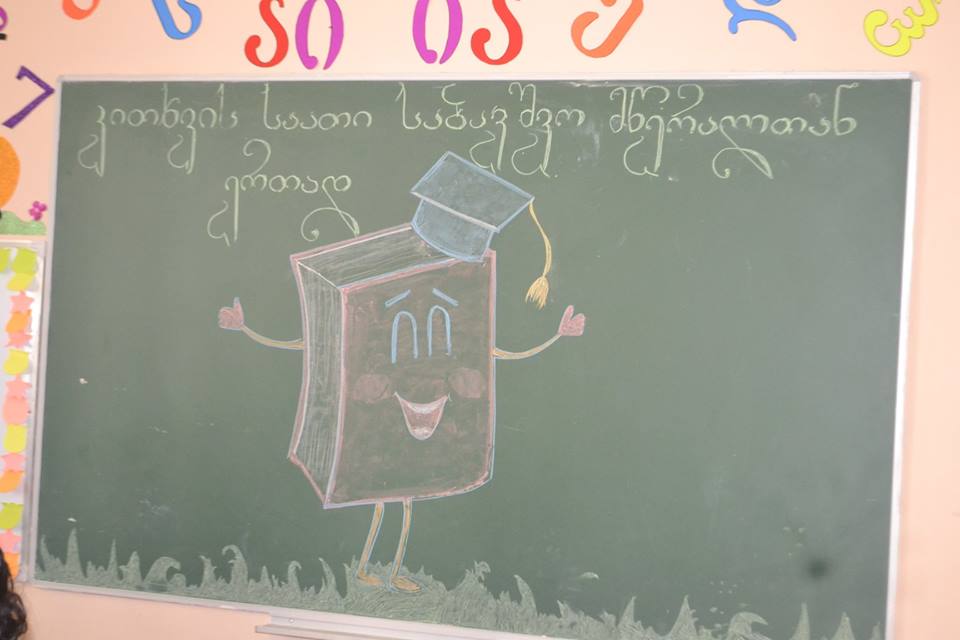 კითხვის საათი საბავშვო მწერალთან
ერთად